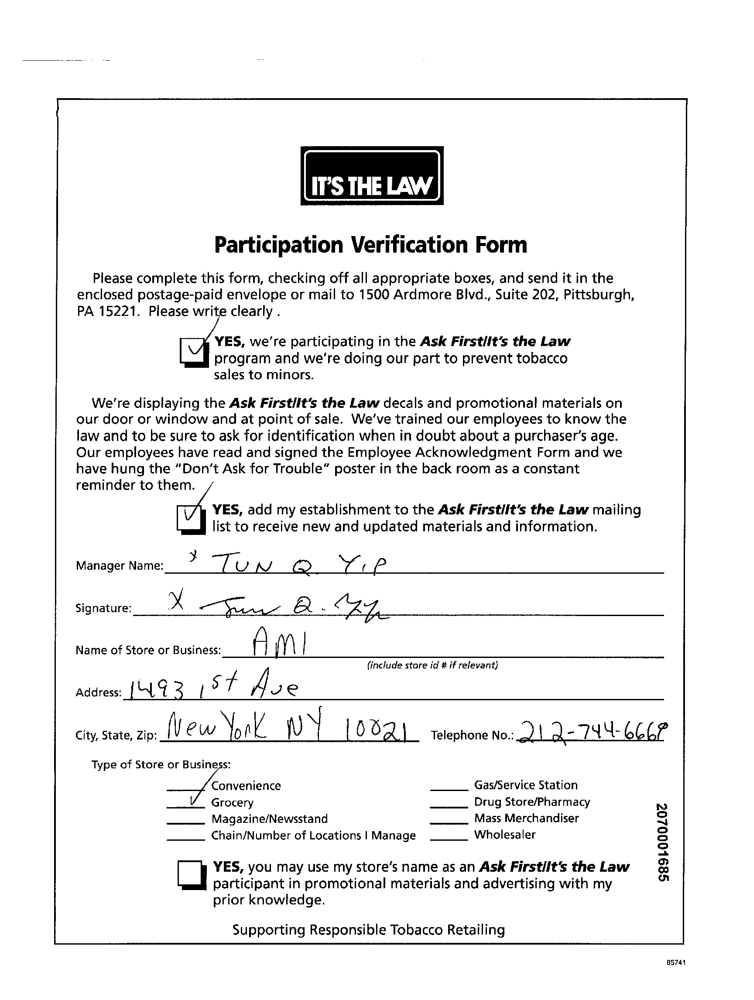 IT'S THE LAW
Participation Verification Form
Please complete this form, checking off all appropriate boxes, and send it in the
enclosed postage-paid envelope or mail to 1500 Ardmore Blvd., Suite 202, Pittsburgh,
PA 15221. Please write clearly .
YES, we're participating in the Ask First/It's the Law
program and we're doing our part to prevent tobacco
sales to minors.
We're displaying the Ask First/It's the Law decals and promotional materials on
our door or window and at point of sale. We've trained our employees to know the
law and to be sure to ask for identification when in doubt about a purchaser's age.
Our employees have read and signed the Employee Acknowledgment Form and we
have hung the "Don't Ask for Trouble" poster in the back room as a constant
reminder to them.
YES, add my establishment to the Ask First/It's the Law mailing
list to receive new and updated materials and information.
Manager Name: x TUN Q YIP
Signature: X Tun Q. Yip
Name of Store or Business: AMI
(include store id # if relevant)
Address: 1493 1st Ave
City, State, Zip: New York NY 10021 Telephone No.: 212-744-6668
Type of Store or Business:
Convenience Gas/Service Station
Grocery Drug Store/Pharmacy
Magazine/Newsstand Mass Merchandiser
Chain/Number of Locations I Manage Wholesaler
YES, you may use my store's name as an Ask First/It's the Law
participant in promotional materials and advertising with my
prior knowledge.
Supporting Responsible Tobacco Retailing
2070001685
85741